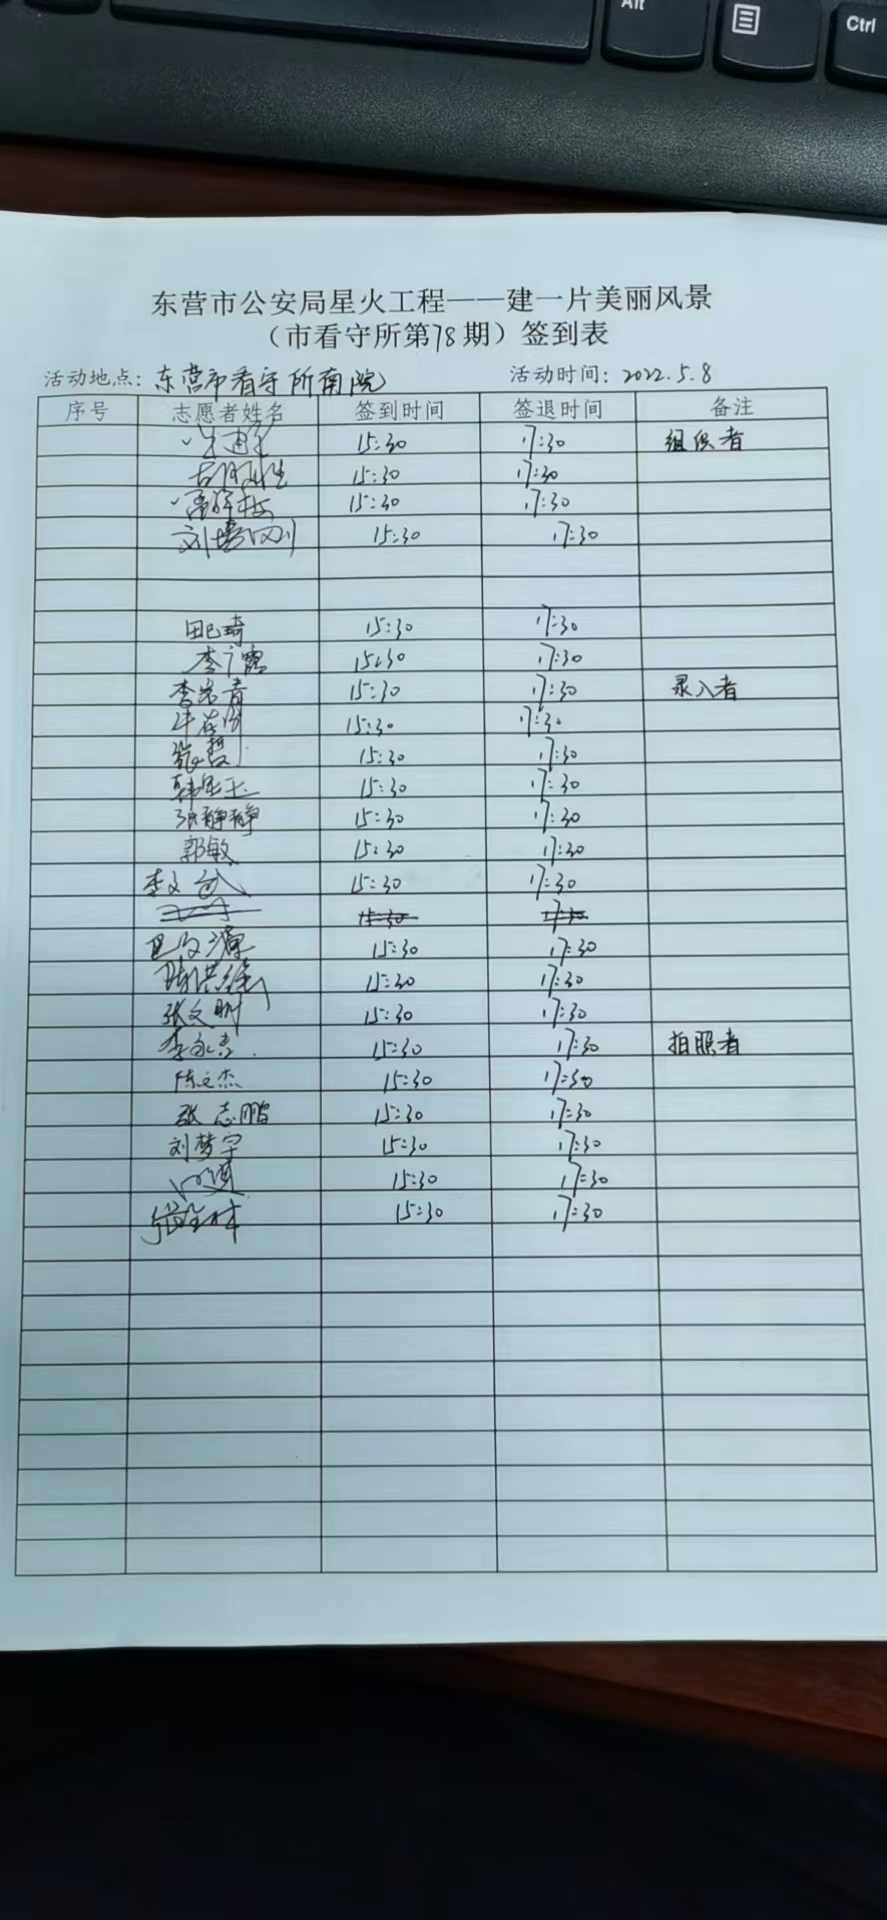 Alt
Ctrl
东营市公安局星火工程——建一片美丽风景
（市看守所第78期）签到表
活动地点：东营市看守所南院 活动时间：2022.5.8
序号 志愿者姓名 签到时间 签退时间 备注
15:30 17:30 组织者
15:30 17:30
15:30 17:30
刘 15:30 17:30
田巳琦 15:30 17:30
李 15:30 17:30
李 青 15:30 17:30 录入者
15:30 17:30
15:30 17:30
韩 15:30 17:30
张静静 15:30 17:30
郭敏 15:30 17:30
李文武 15:30 17:30
15:30 17:30
巴文源 15:30 17:30
陈 15:30 17:30
张文明 15:30 17:30
李永吉 15:30 17:30 拍照者
陈文杰 15:30 17:30
张志鹏 15:30 17:30
刘梦宇 15:30 17:30
15:30 17:30
张 15:30 17:30